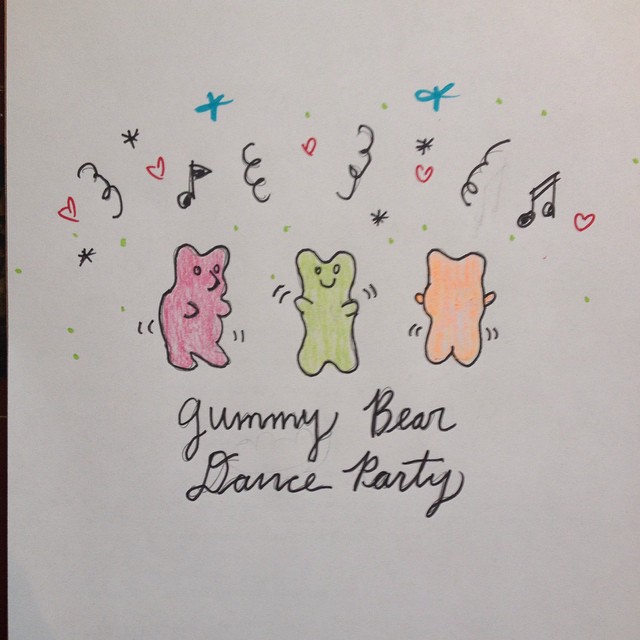 gummy Bear
Dance Party